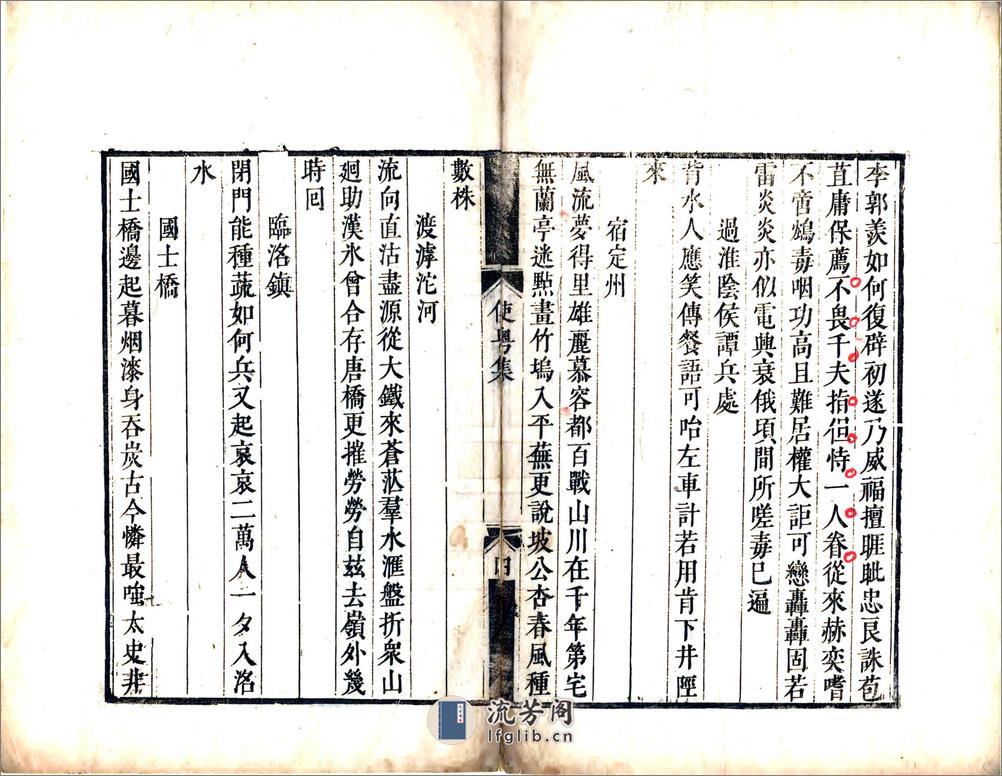 李郭羨如何復辟初遂乃威福擅睚眦忠良誅苞
苴庸保薦不畏千夫指但恃一人眷從來赫奕嗜
不啻鴆毒咽功高且難居權大詎可戀轟轟固若
雷炎炎亦似電興衰俄頃間所嗟毒已遍
過淮陰侯譚兵處
背水人應笑傳餐語可咍左車計若用肯下井陘
來
宿定州
風流夢得里雄麗慕容都百戰山川在千年第宅
無蘭亭迷㸃畫竹塢入平蕪更說坡公杏春風種
使粤集
四
數株
渡滹沱河
流向直沽盡源從大鐵來蒼茫羣水滙盤折衆山
廻助漢氷曾合存唐橋更摧勞勞自兹去嶺外幾
時回
臨洺鎮
閉門能種蔬如何兵又起哀哀二萬人一夕入洺
水
國士橋
國士橋邊起暮烟漆身吞炭古今憐最嗤太史非
流芳阁
lfglib.cn